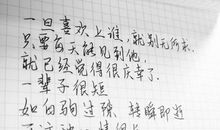 一旦喜欢上谁,就别无所求.
只要每天能见到他.
就已经觉得很庆幸了.
一辈子很短
如白驹过隙、转瞬即逝